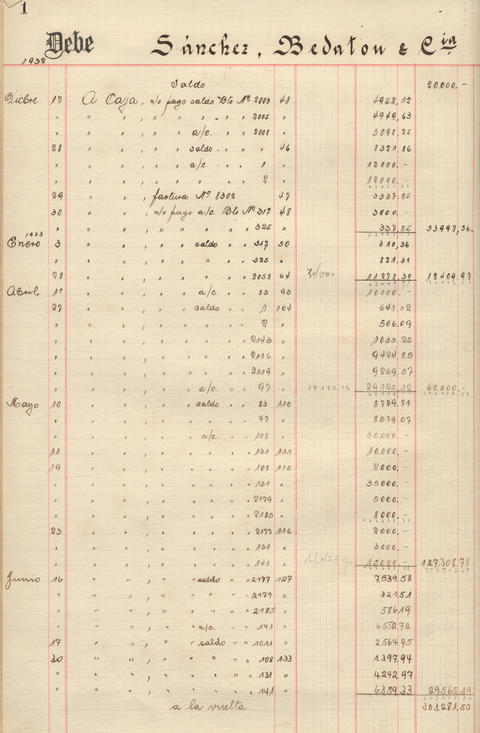 1
Debe Sánchez, Bedatou & Cia
1932
Saldo 20000.-
Dicbre 17 A Caja, n/o pago saldo Bto Nº 2003 41 4952,02
" " " , " " " " " 2005 " 4949,63
" " " , " " a/c. " " 2008 " 3098,25
28 " " , " " saldo " " 46 8321,86
" " " , " " a/c. " " 1 " 12000.-
" " " , " " " " " 2 " 12000.-
29 " " , factura Nº 8302 47 3337.85
30 " " , n/o pago a/c. Bto Nº 317 48 3000.-
" " " , " " " " " 325 " 337,85 53997,56.
1933
Enero 3 " " , " " saldo " " 317 50 310,36
" " " , " " " " " 325 " 821,31
28 " " , " " " " " 2058 64 11278,30 12409,97
Abril 1º " " , " " a/c. " " 23 93 10000.-
27 " " , " " saldo " " 1 104 641,12
" " " , " " " " " 2 " 506,09
" " " , " " " " " 2143 " 1033,25
" " " , " " " " " 2116 " 9424,85
" " " , " " " " " 2119 " 9269,57
" " " , " " a/c. " " 97 " 29125,12 60000.-
Mayo 10 " " , " " saldo " " 23 110 8729,71
" " " , " " " " " 97 " 8579,07
" " " , " " a/c. " " 108 " 30000.-
11 " " , " " " " " 131 111 10.000.-
19 " " , " " " " " 108 115 2000.-
" " " , " " " " " 131 " 35000.-
" " " , " " " " " 2179 " 5000.-
" " " , " " " " " 2185 " 8000.-
23 " " , " " " " " 2177 116 2000.-
" " " , " " " " " 131 " 3000.-
" " " , " " " " " 141 " 15000.- 127.308.78
Junio 16 " " , " " saldo " " 2177 127 7.539.58
" " " , " " " " " 2179 " 321,51
" " " , " " " " " 2185 " 586,19
" " " , " " a/c. " " 141 " 6.552,72
17 " " , " " saldo " " 1011 " 2.564,95
30 " " , " " " " " 108 133 1.397,94
" " " , " " " " " 131 " 4.242,97
" " " , " " " " " 141 " 6.359,33 29.565,19
a la vuelta 303281,50